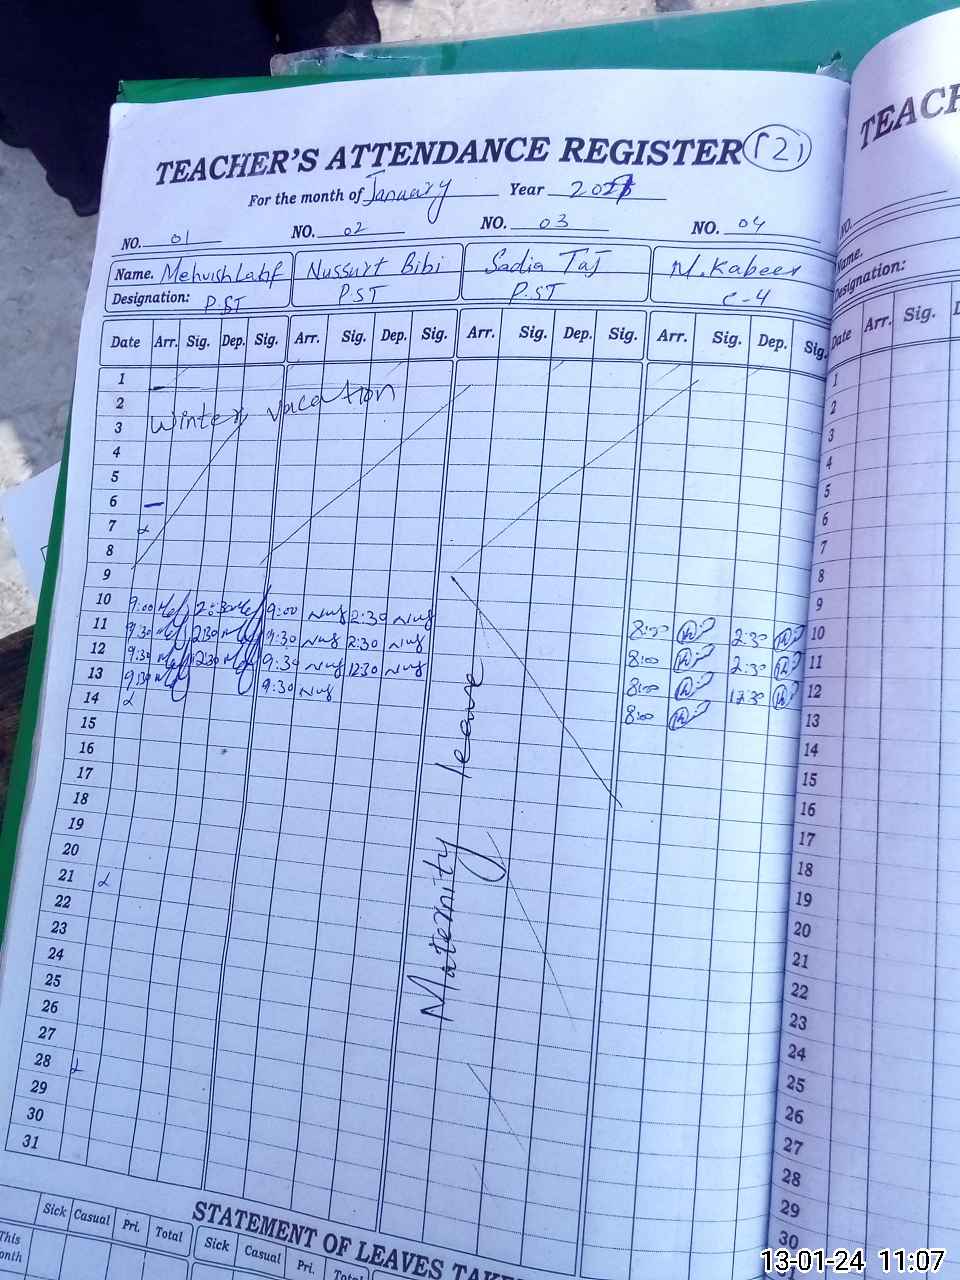 TEACHER'S ATTENDANCE REGISTER (2)
For the month of January Year
NO. 01 NO. 02 NO. 03 NO. 04
Name. Mehvish Latif Nussurt Bibi Sadia Taj M. Kabeer
Designation: P.ST P.ST P.ST C-4
Date Arr. Sig. Dep. Sig. Arr. Sig. Dep. Sig. Arr. Sig. Dep. Sig. Arr. Sig. Dep. Sig.
1
2
3
Winter vacation
4
5
6
7
8
9
10 9:00 2:30 9:00 2:30 8:00 2:30
11 9:30 2:30 9:30 2:30 8:00 2:30
12 9:30 12:30 9:30 12:30 8:00 12:30
13 9:30 9:30 8:00
14
15
16
17
18
19
20
21
22
23
24
25
26
27
28
29
30
31
Maternity leave
STATEMENT OF LEAVES
Sick Casual Pri. Total Sick Casual Pri. Total
This
TEACH
NO.
Name.
Designation:
Date Arr. Sig.
1
2
3
4
5
6
7
8
9
10
11
12
13
14
15
16
17
18
19
20
21
22
23
24
25
26
27
28
29
30
13-01-24 11:07